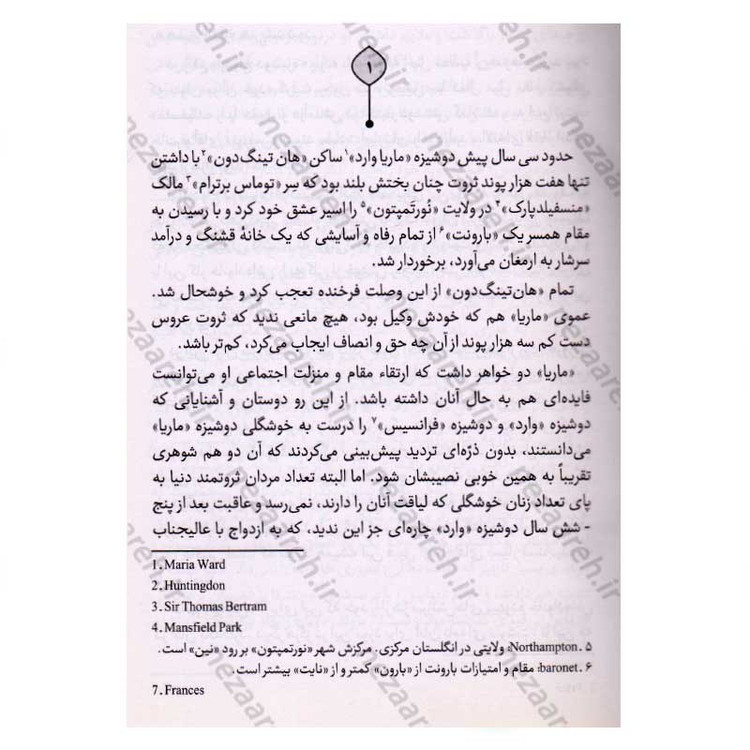 ۱
حدود سی سال پیش دوشیزه «ماریا وارد»۱ ساکن «هان تینگ‌دون»۲ با داشتن
تنها هفت هزار پوند ثروت چنان بختش بلند بود که سِر «توماس برترام»۳ مالک
«منسفیلدپارک»۴ در ولایت «نُورتَمپتون»۵ را اسیر عشق خود کرد و با رسیدن به
مقام همسر یک «بارونت»۶ از تمام رفاه و آسایشی که یک خانهٔ قشنگ و درآمد
سرشار به ارمغان می‌آورد، برخوردار شد.
تمام «هان‌تینگ‌دون» از این وصلت فرخنده تعجب کرد و خوشحال شد.
عموی «ماریا» هم که خودش وکیل بود، هیچ مانعی ندید که ثروت عروس
دست کم سه هزار پوند از آن چه حق و انصاف ایجاب می‌کرد، کم‌تر باشد.
«ماریا» دو خواهر داشت که ارتقاء مقام و منزلت اجتماعی او می‌توانست
فایده‌ای هم به حال آنان داشته باشد. از این رو دوستان و آشنایانی که
دوشیزه «وارد» و دوشیزه «فرانسیس»۷ را درست به خوشگلی دوشیزه «ماریا»
می‌دانستند، بدون ذرّه‌ای تردید پیش‌بینی می‌کردند که آن دو هم شوهری
تقریباً به همین خوبی نصیبشان شود. اما البته تعداد مردان ثروتمند دنیا به
پای تعداد زنان خوشگلی که لیاقت آنان را دارند، نمی‌رسد و عاقبت بعد از پنج
- شش سال دوشیزه «وارد» چاره‌ای جز این ندید، که به ازدواج با عالیجناب
1. Maria Ward
2. Huntingdon
3. Sir Thomas Bertram
4. Mansfield Park
۵. Northampton: ولایتی در انگلستان مرکزی. مرکزش شهر «نورتمپتون» بر رود «نین» است.
۶. baronet: مقام و امتیازات بارونت از «بارون» کمتر و از «نایت» بیشتر است.
7. Frances
nezaareh.ir